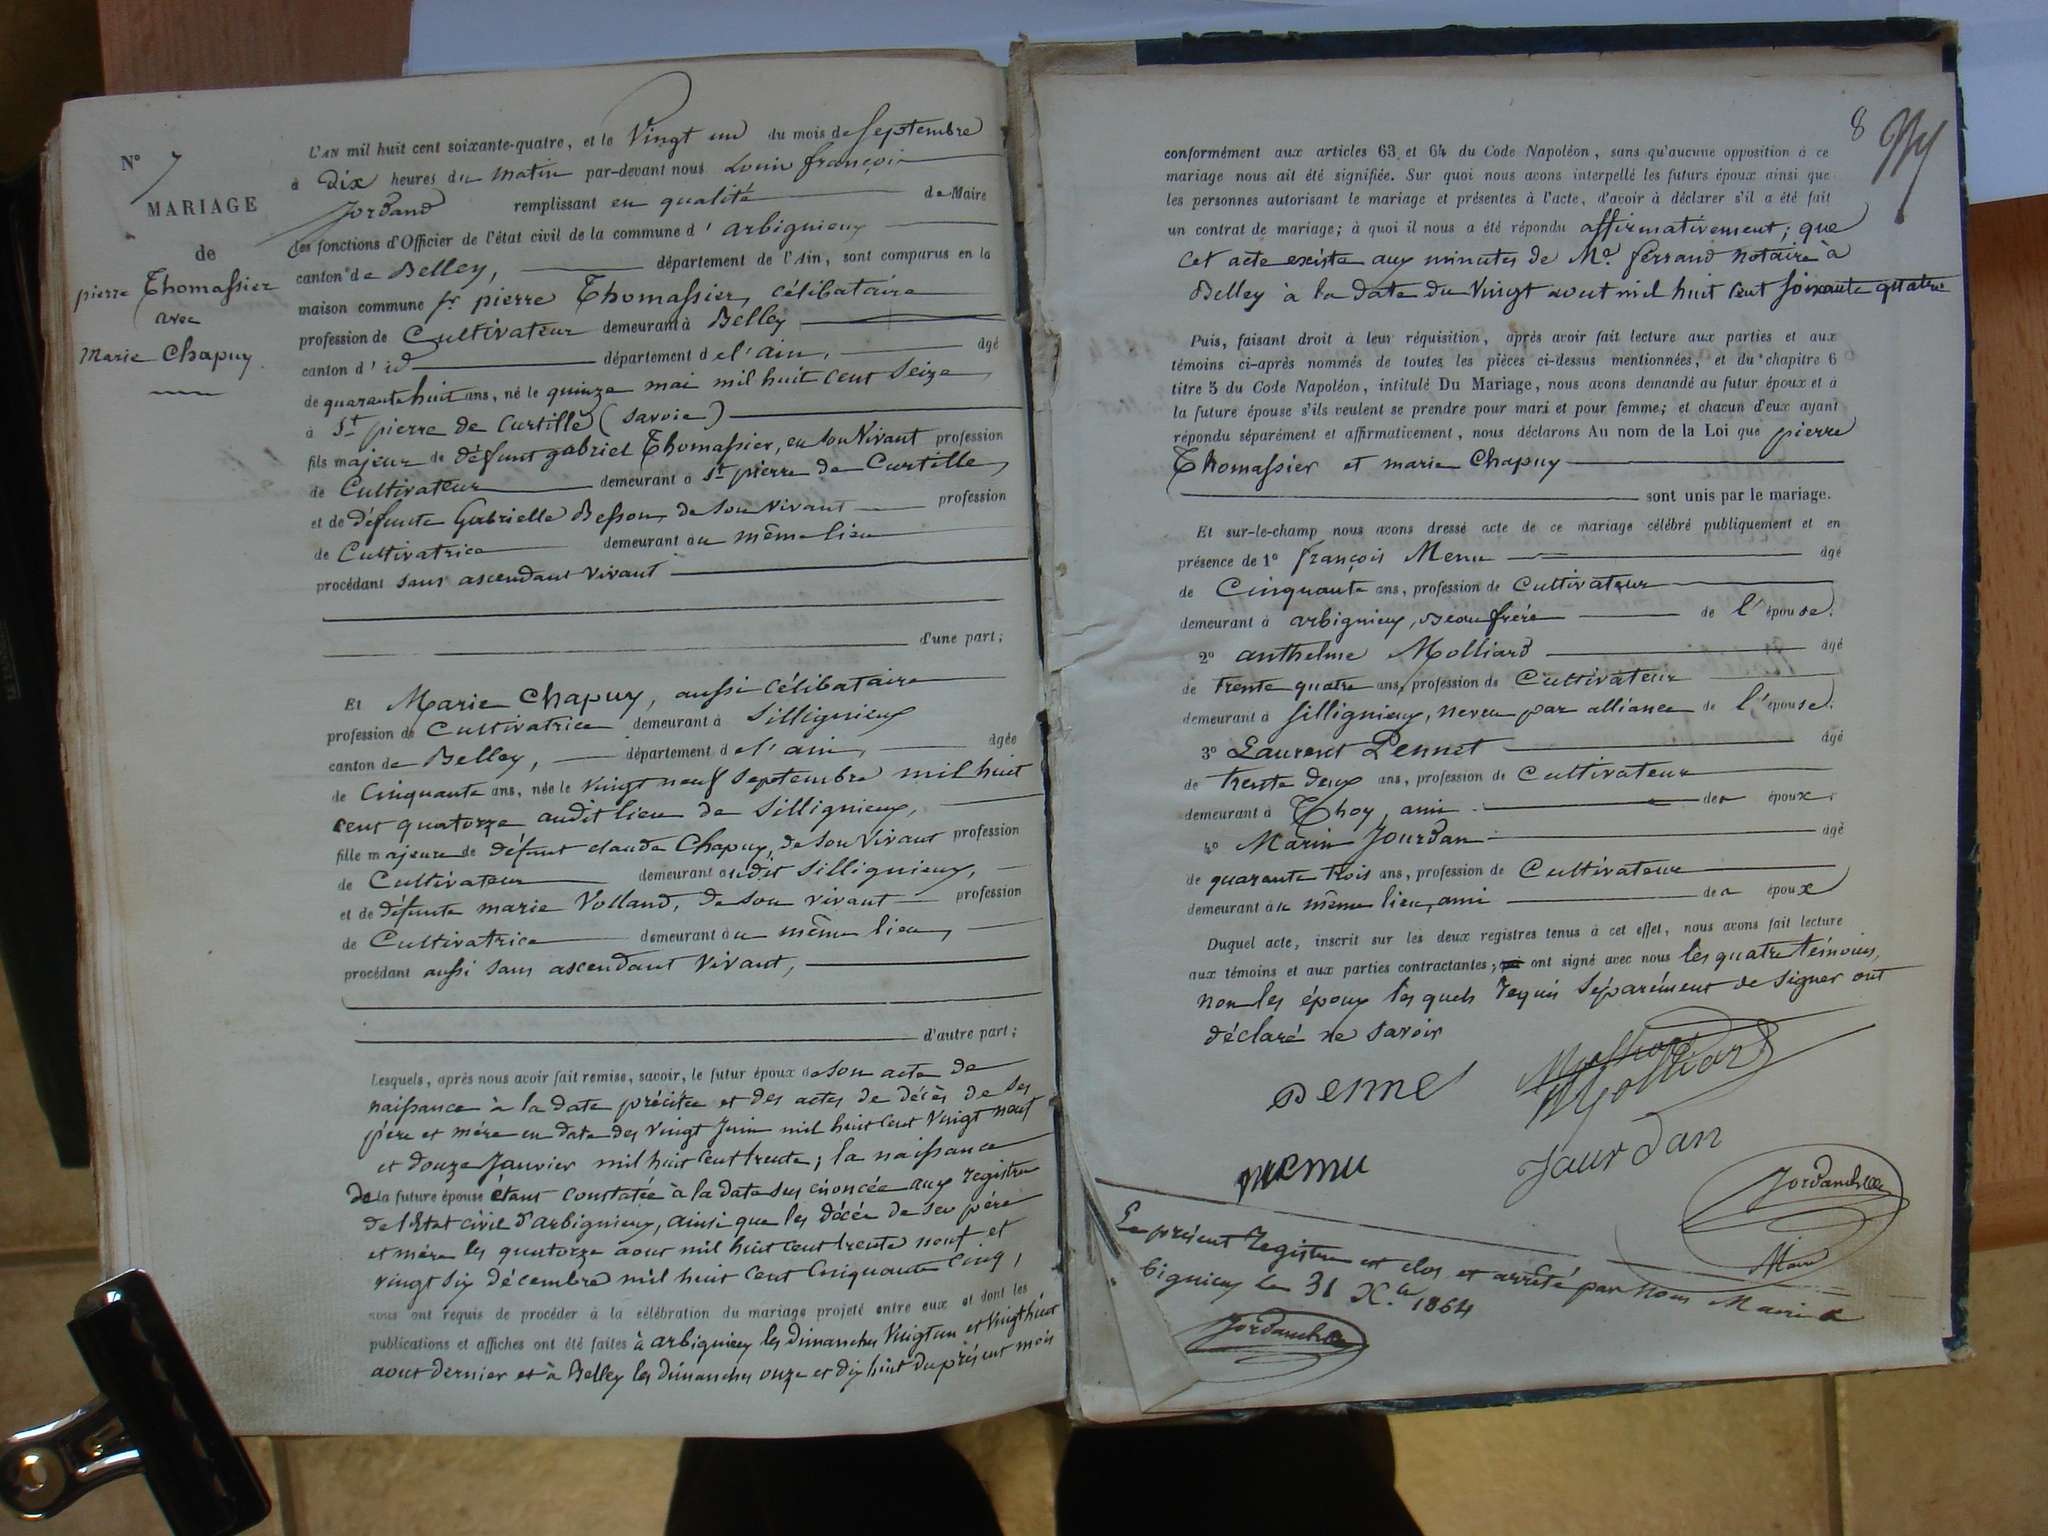 N° 7
MARIAGE
de
pierre Thomassier
avec
Marie Chapuy
L'AN mil huit cent soixante-quatre, et le Vingt un du mois de Septembre
à Dix heures du Matin par-devant nous Louis françois
Jordand remplissant en qualité de Maire
des fonctions d'Officier de l'état civil de la commune d' arbignieux
canton de Belley, département de l'Ain, sont comparus en la
maison commune sr pierre Thomassier, célibataire
profession de Cultivateur demeurant à Belley
canton d' id département de l'ain, âgé
de quarante huit ans, né le quinze mai mil huit cent Seize
à St pierre de Curtille (Savoie)
fils majeur de défunt gabriel Thomassier, en son Vivant profession
de Cultivateur demeurant à St pierre de Curtille,
et de défunte Gabrielle Besson, de son vivant profession
de Cultivatrice demeurant au même lieu
procédant sans ascendant vivant
d'une part;
Et Marie Chapuy, aussi célibataire
profession de Cultivatrice demeurant à Sillignieux
canton de Belley, département de l'ain, âgée
de Cinquante ans, née le vingt neuf Septembre mil huit
cent quatorze audit lieu de Sillignieux,
fille majeure de défunt claude Chapuy, de son vivant profession
de Cultivateur demeurant audit Sillignieux,
et de défunte marie Volland, de son vivant profession
de Cultivatrice demeurant au même lieu,
procédant aussi sans ascendant vivant,
d'autre part;
Lesquels, après nous avoir fait remise, savoir, le futur époux de son acte de
naissance à la date précitée et des actes de décès de ses
père et mère en date des vingt Juin mil huit cent vingt neuf
et douze Janvier mil huit cent trente; la naissance
de la future épouse étant constatée à la date sus énoncée aux registres
de l'Etat civil d'arbignieux, ainsi que les décès de ses père
et mère les quatorze aout mil huit cent trente neuf et
vingt six décembre mil huit cent Cinquante cinq,
nous ont requis de procéder à la célébration du mariage projeté entre eux et dont les
publications et affiches ont été faites à arbignieux les dimanches vingt un et vingt huit
aout dernier et à Belley les dimanches onze et dix huit du présent mois
8
conformément aux articles 63 et 64 du Code Napoléon, sans qu'aucune opposition à ce
mariage nous ait été signifiée. Sur quoi nous avons interpellé les futurs époux ainsi que
les personnes autorisant le mariage et présentes à l'acte, d'avoir à déclarer s'il a été fait
un contrat de mariage; à quoi il nous a été répondu affirmativement; que
cet acte existe aux minutes de Me ferrand notaire à
Belley à la date du vingt aout mil huit cent soixante quatre
Puis, faisant droit à leur réquisition, après avoir fait lecture aux parties et aux
témoins ci-après nommés de toutes les pièces ci-dessus mentionnées, et du chapitre 6
titre 5 du Code Napoléon, intitulé Du Mariage, nous avons demandé au futur époux et à
la future épouse s'ils veulent se prendre pour mari et pour femme; et chacun d'eux ayant
répondu séparément et affirmativement, nous déclarons Au nom de la Loi que pierre
Thomassier et marie Chapuy
sont unis par le mariage.
Et sur-le-champ nous avons dressé acte de ce mariage célébré publiquement et en
présence de 1° françois Menu âgé
de Cinquante ans, profession de Cultivateur
demeurant à arbignieux, Beau frère de l'épouse.
2° anthelme Molliard âgé
de trente quatre ans, profession de Cultivateur
demeurant à Sillignieux, neveu par alliance de l'épouse.
3° Laurent Pennet âgé
de trente deux ans, profession de Cultivateur
demeurant à Thoy, ami des époux.
4° Marin Jourdan âgé
de quarante trois ans, profession de Cultivateur
demeurant au même lieu, ami des époux
Duquel acte, inscrit sur les deux registres tenus à cet effet, nous avons fait lecture
aux témoins et aux parties contractantes, ont signé avec nous les quatre témoins,
non les époux les quels requis séparément de signer ont
déclaré ne savoir
Pennet
Molliard
menu
Jourdan
Maire
Le présent Registre est clos et arrêté par nous Maire
bignieux le 31 Xbre 1864